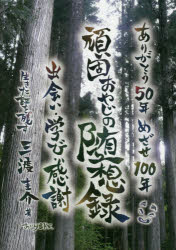 ありがとう50年めざせ100年
頑固おやじの随想録
出会い学び感謝